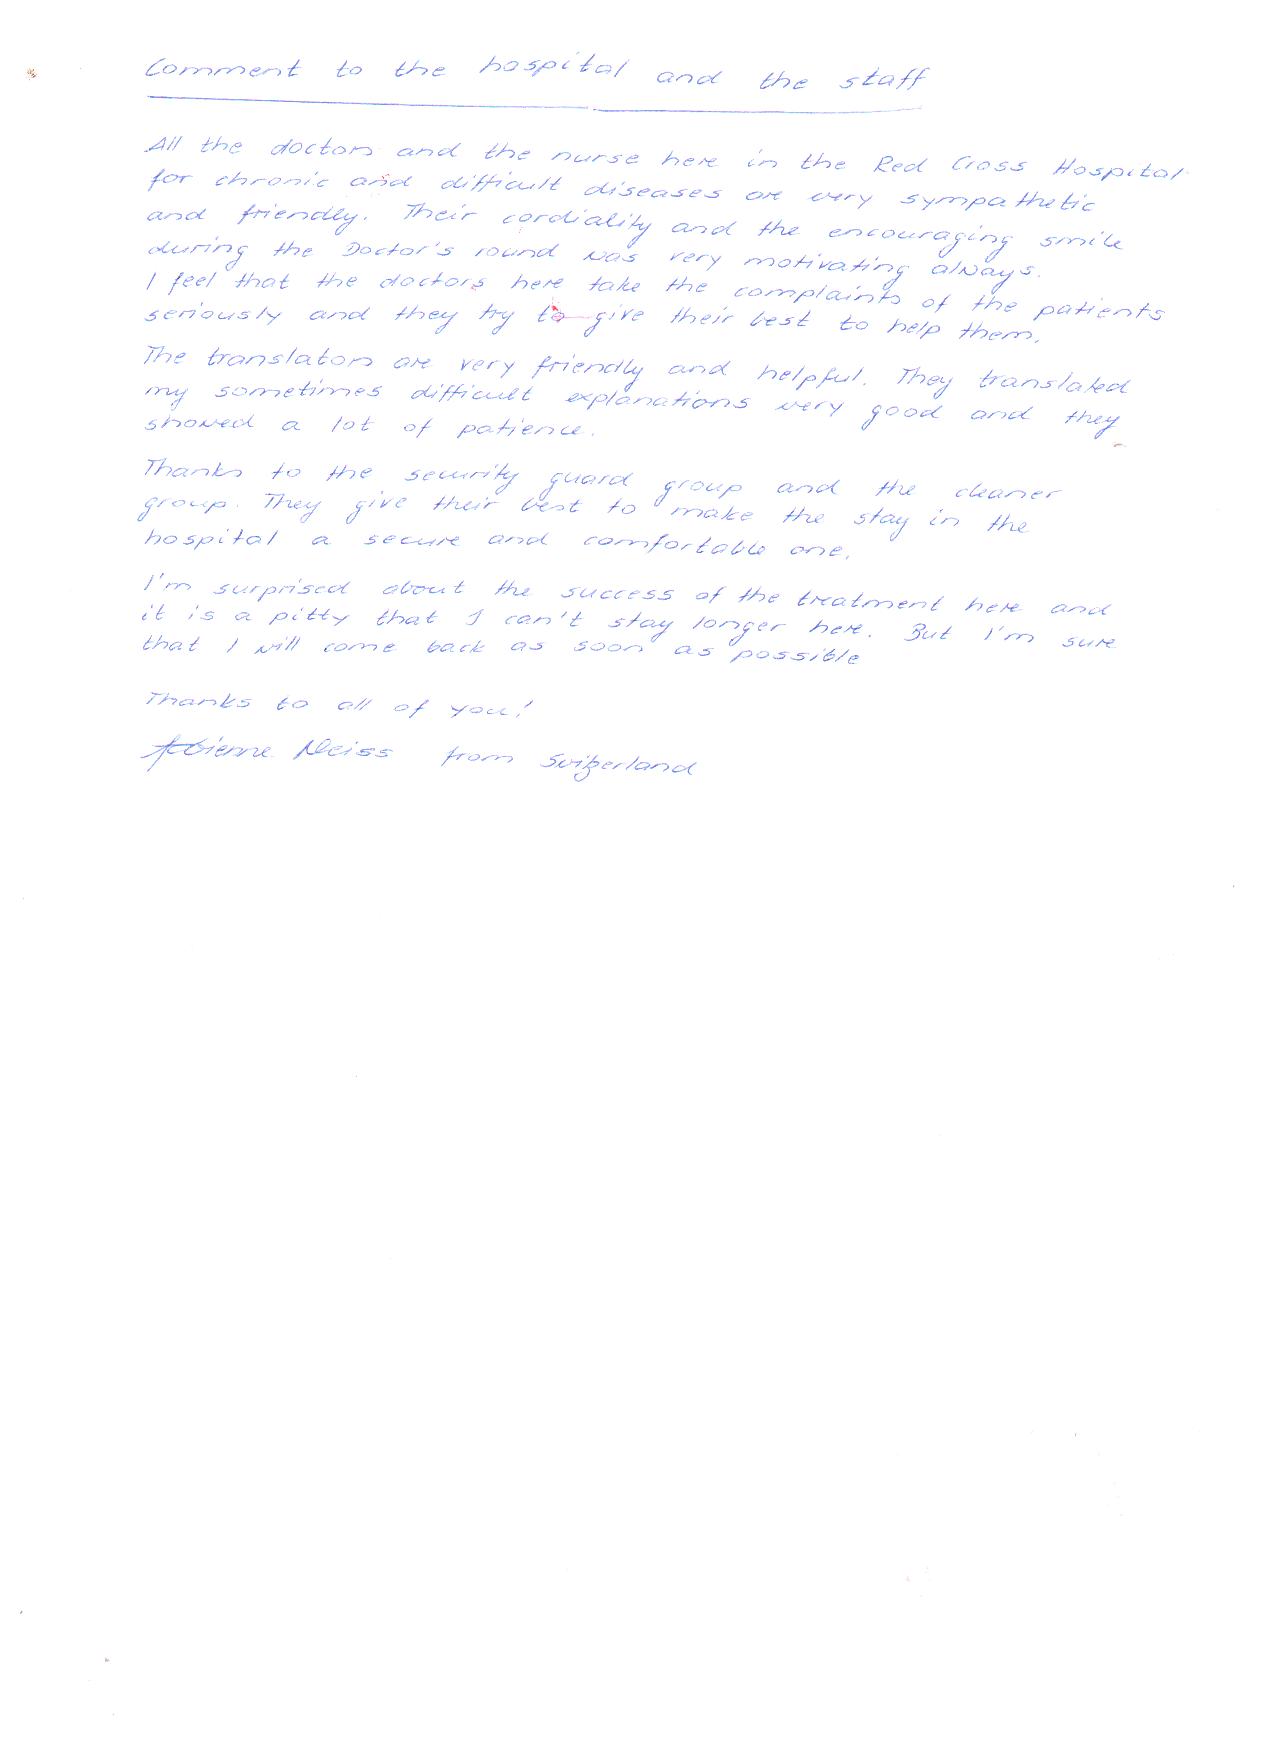 Comment to the hospital and the staff
All the doctors and the nurse here in the Red Cross Hospital
for chronic and difficult diseases are very sympathetic
and friendly. Their cordiality and the encouraging smile
during the Doctor's round was very motivating always.
I feel that the doctors here take the complaints of the patients
seriously and they try to give their best to help them.
The translators are very friendly and helpful. They translated
my sometimes difficult explanations very good and they
showed a lot of patience.
Thanks to the security guard group and the cleaner
group. They give their best to make the stay in the
hospital a secure and comfortable one.
I'm surprised about the success of the treatment here and
it is a pitty that I can't stay longer here. But I'm sure
that I will come back as soon as possible
Thanks to all of you!
from Switzerland